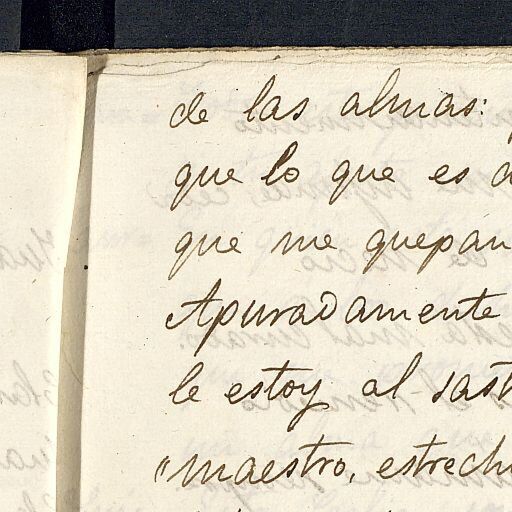 de las almas:
que lo que es
que me quepan
Apuradamente
le estoy al sast
"maestro, estrech